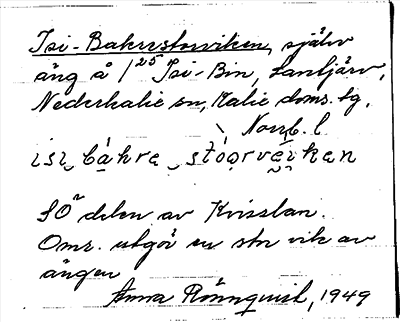 Isi-Bakerstorviken, själv
äng å 1²⁵ Isi-Bin, Lantjärv,
Nederkalix sn, Kalix doms. tg.
Norrb. l
isi bahre stoorveiken
SO delen av Kvisslan.
Omr. utgör en stor vik av
ängen
Anna Rönnquist, 1949